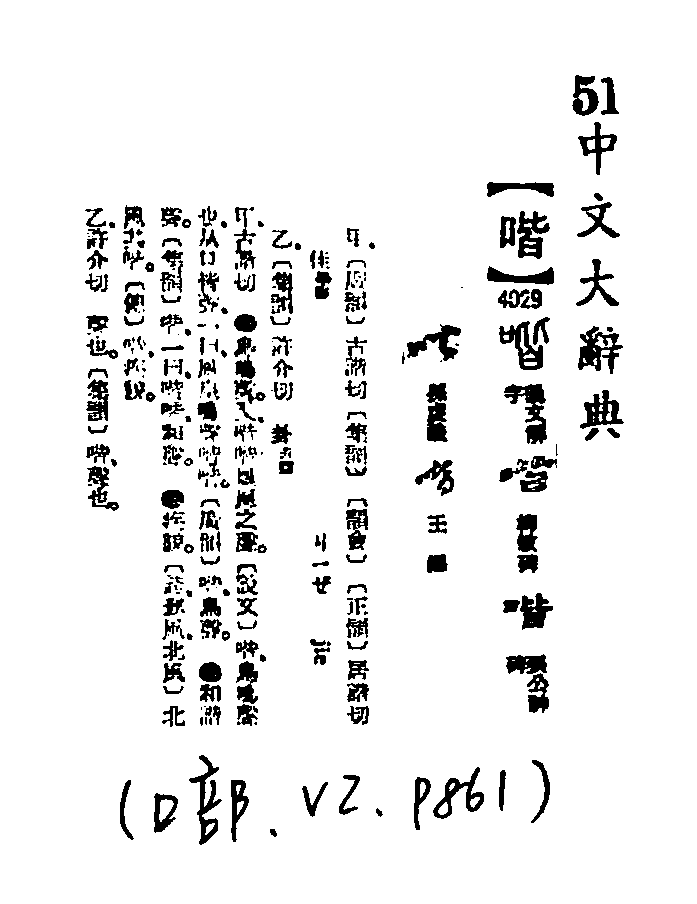 51中文大辭典
【喈】
4029
喈 說文解字
柳敏碑
張公神碑
孫虔禮
王
甲、〔廣韻〕古諧切〔集韻〕〔韻會〕〔正韻〕居諧切
佳平聲 ㄐㄧㄝ jie
乙、〔集韻〕許介切 卦去聲
甲、古諧切 ❶鳥鳴聲。又喈喈風雨之聲。〔說文〕喈、鳥鳴聲
也、从口皆聲、一曰風雨鳴聲喈喈。〔廣韻〕喈、鳥聲。❷和諧
聲。〔集韻〕喈、一曰、喈喈、和聲。❸疾貌。〔詩、邶風、北風〕北
風其喈。〔傳〕喈、疾貌。
乙、許介切 聲也。〔集韻〕喈、聲也。
(口部、V2、P861)